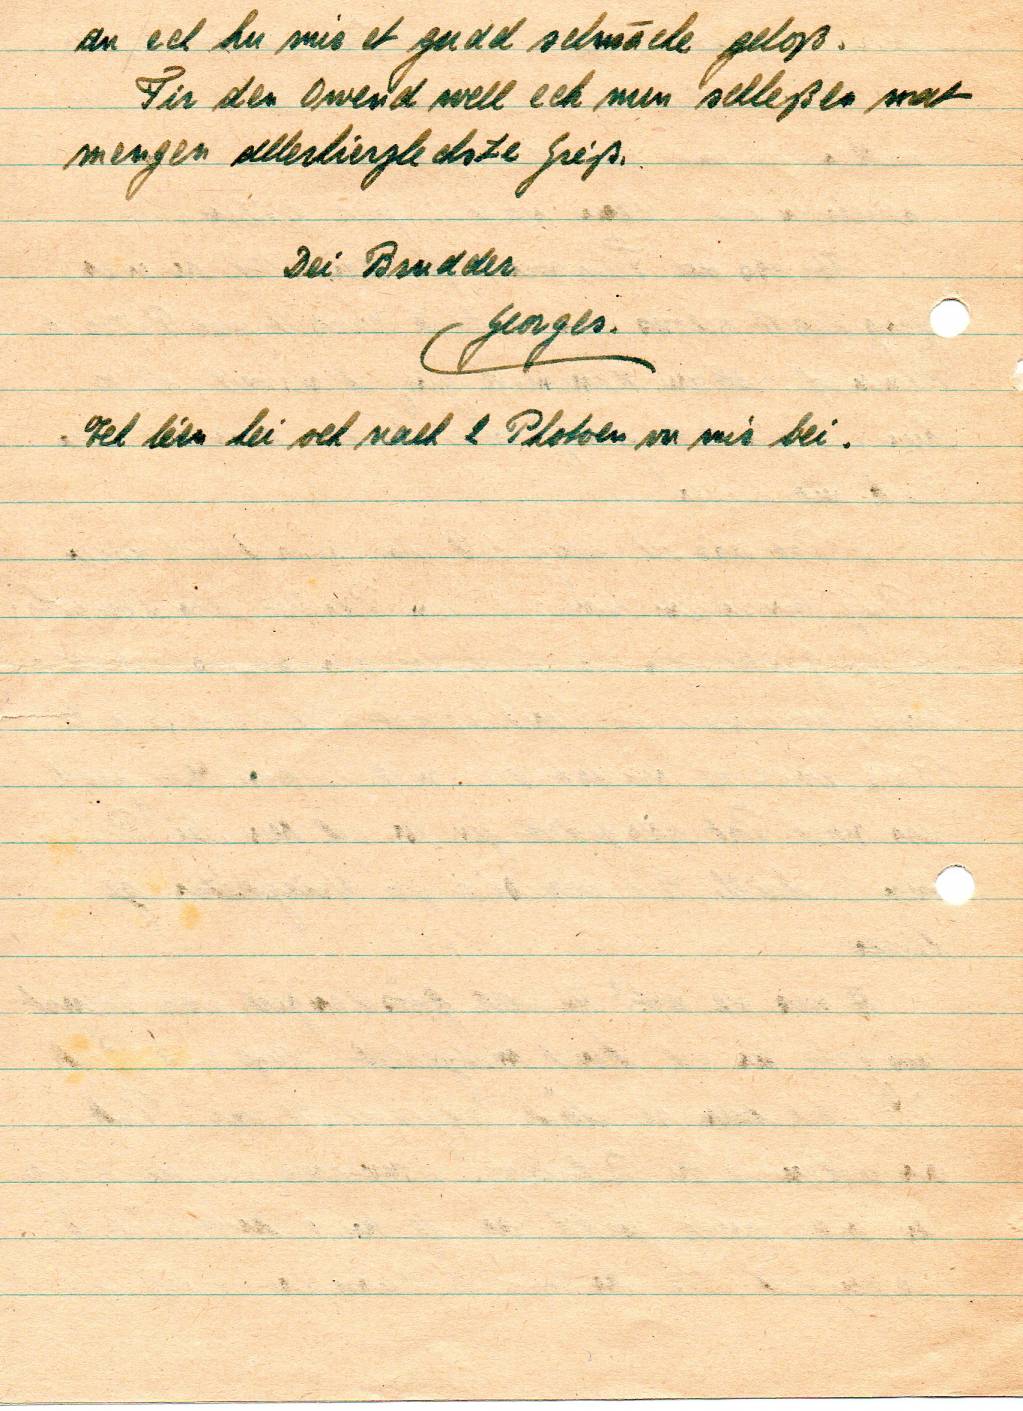 an ech hu mir et gudd schmäche geloß.
Fir den Owend well ech nun schleßen mat
mengen allerhierzlechste Gréiß.
Dei Brudder
Georges.
Ech léen hei och nach 2 Photoen vu mir bei.